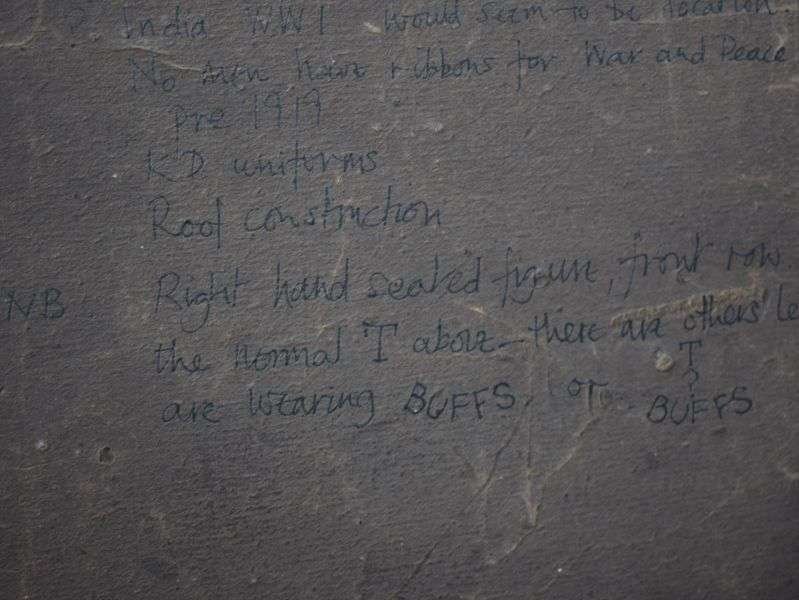 ? India WW1 would seem to be location
No men have ribbons for War and Peace
pre 1919
KD uniforms
Roof construction
NB Right hand seated figure, front row.
the normal T above - there are others' Le
T
?
are wearing BUFFS, or BUFFS